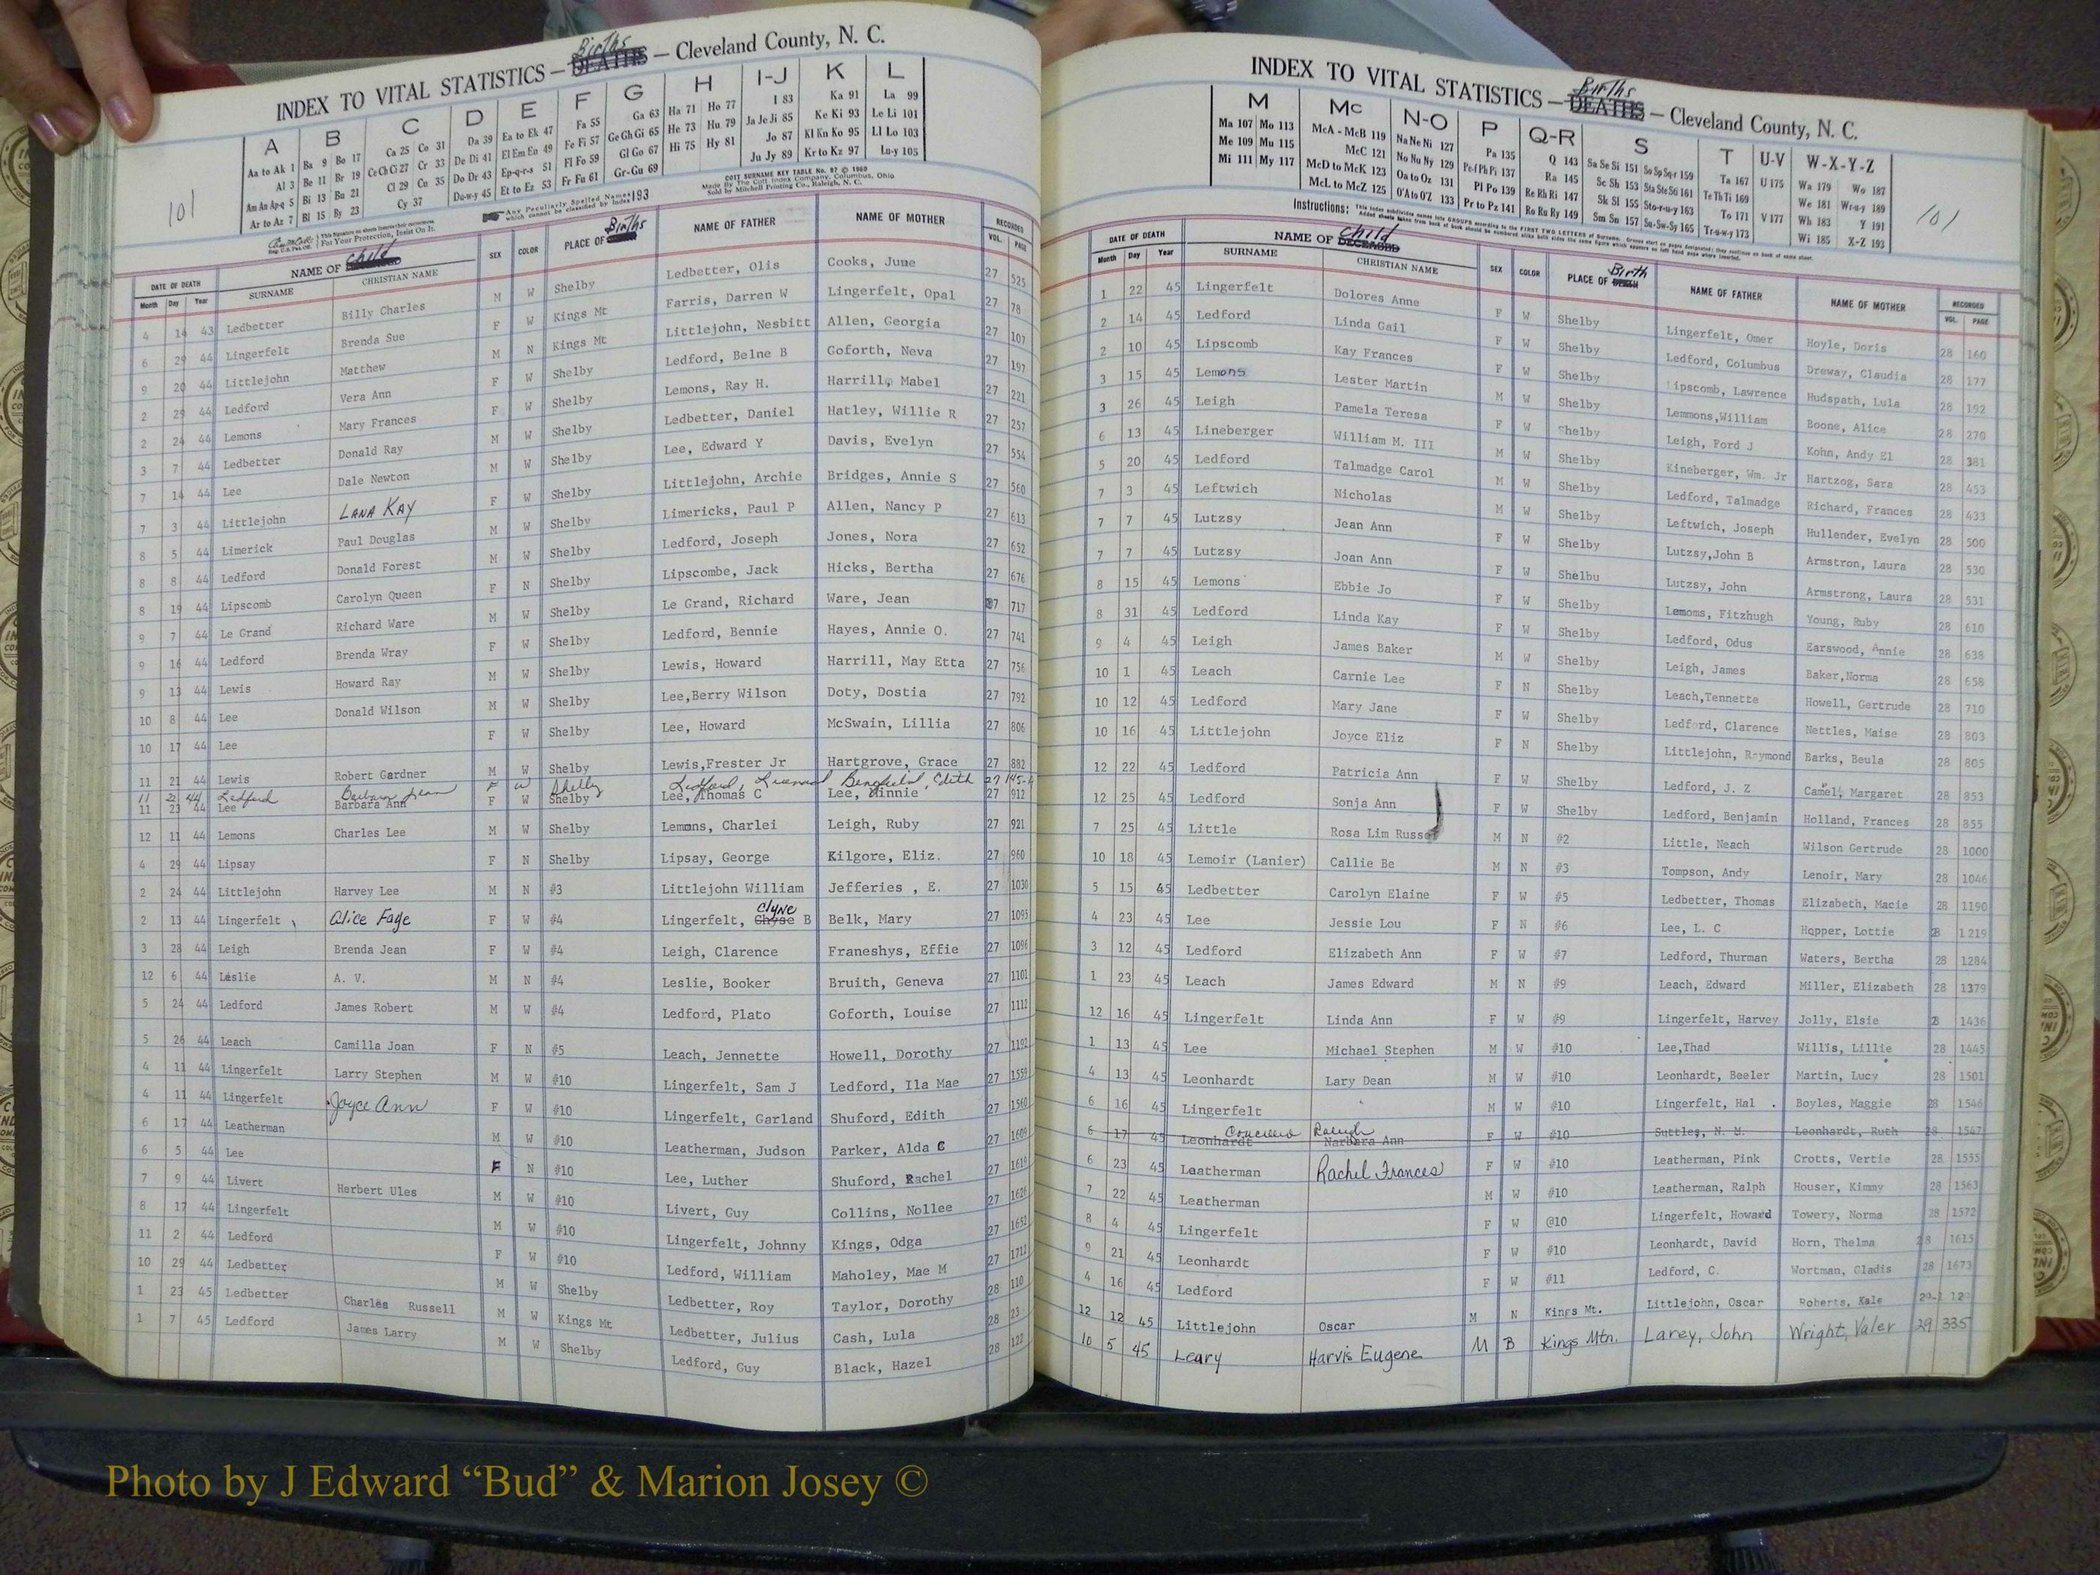 INDEX TO VITAL STATISTICS — Births DEATHS — Cleveland County, N. C.
101
A B C D E F G H I-J K L
Aa to Ak 1 Ba 9 Bo 17 Ca 25 Co 31 Da 39 Ea to Ek 47 Fa 55 Ga 63 Ha 71 Ho 77 I 83 Ka 91 La 99
Al 3 Be 11 Br 19 Ce Ch Ci 27 Cr 33 De Di 41 El Em En 49 Fe Fi 57 Ge Gh Gi 65 He 73 Hu 79 Ja Je Ji 85 Ke Ki 93 Le Li 101
Am An Ap-q 5 Bi 13 Bu 21 Cl 29 Cu 35 Do Dr 43 Ep-q-r-s 51 Fl Fo 59 Gl Go 67 Hi 75 Hy 81 Jo 87 Kl Kn Ko 95 Ll Lo 103
Ar to Az 7 Bl 15 By 23 Cy 37 Du-w-y 45 Et to Ez 53 Fr Fu 61 Gr-Gu 69 Ju Jy 89 Kr to Kz 97 Lu-y 105
COTT SURNAME KEY TABLE No. 97 © 1960
Made By The Cott Index Company, Columbus, Ohio
Sold by Mitchell Printing Co., Raleigh, N. C.
Any Peculiarly Spelled Names which cannot be classified by Index 193
For Your Protection, Insist On It.
DATE OF DEATH NAME OF Child SEX COLOR PLACE OF Births NAME OF FATHER NAME OF MOTHER RECORDED
Month Day Year SURNAME CHRISTIAN NAME VOL. PAGE
4 14 43 Ledbetter Billy Charles M W Shelby Ledbetter, Olis Cooks, June 27 525
6 29 44 Lingerfelt Brenda Sue F W Kings Mt Farris, Darren W Lingerfelt, Opal 27 78
9 20 44 Littlejohn Matthew M N Kings Mt Littlejohn, Nesbitt Allen, Georgia 27 107
2 29 44 Ledford Vera Ann F W Shelby Ledford, Belne B Goforth, Neva 27 197
2 24 44 Lemons Mary Frances F W Shelby Lemons, Ray H. Harrill, Mabel 27 221
3 7 44 Ledbetter Donald Ray M W Shelby Ledbetter, Daniel Hatley, Willie R 27 257
7 14 44 Lee Dale Newton M W Shelby Lee, Edward Y Davis, Evelyn 27 554
7 3 44 Littlejohn LANA KAY F W Shelby Littlejohn, Archie Bridges, Annie S 27 560
8 5 44 Limerick Paul Douglas M W Shelby Limericks, Paul P Allen, Nancy P 27 613
8 8 44 Ledford Donald Forest M W Shelby Ledford, Joseph Jones, Nora 27 652
8 19 44 Lipscomb Carolyn Queen F N Shelby Lipscombe, Jack Hicks, Bertha 27 676
9 7 44 Le Grand Richard Ware M W Shelby Le Grand, Richard Ware, Jean 27 717
9 16 44 Ledford Brenda Wray F W Shelby Ledford, Bennie Hayes, Annie O. 27 741
9 13 44 Lewis Howard Ray M W Shelby Lewis, Howard Harrill, May Etta 27 756
10 8 44 Lee Donald Wilson M W Shelby Lee,Berry Wilson Doty, Dostia 27 792
10 17 44 Lee F W Shelby Lee, Howard McSwain, Lillia 27 806
11 21 44 Lewis Robert Gardner M W Shelby Lewis,Frester Jr Hartgrove, Grace 27 882
11 21 44 Ledford Barbara Jean F W Shelby Ledford, Edith 27
11 23 44 Lee Barbara Ann F W Shelby Lee, Thomas C Lee, Minnie 27 912
12 11 44 Lemons Charles Lee M W Shelby Lemons, Charlei Leigh, Ruby 27 921
4 29 44 Lipsay F N Shelby Lipsay, George Kilgore, Eliz. 27 960
2 24 44 Littlejohn Harvey Lee M N #3 Littlejohn William Jefferies , E. 27 1030
2 13 44 Lingerfelt Alice Faye F W #4 Lingerfelt, Clyne Chyse B Belk, Mary 27 1095
3 28 44 Leigh Brenda Jean F W #4 Leigh, Clarence Franeshys, Effie 27 1096
12 6 44 Leslie A. V. M N #4 Leslie, Booker Bruith, Geneva 27 1101
5 24 44 Ledford James Robert M W #4 Ledford, Plato Goforth, Louise 27 1112
5 26 44 Leach Camilla Joan F N #5 Leach, Jennette Howell, Dorothy 27 1192
4 11 44 Lingerfelt Larry Stephen M W #10 Lingerfelt, Sam J Ledford, Ila Mae 27 1559
4 11 44 Lingerfelt Joyce Ann F W #10 Lingerfelt, Garland Shuford, Edith 27 1560
6 17 44 Leatherman M W #10 Leatherman, Judson Parker, Alda C 27 1609
6 5 44 Lee F N #10 Lee, Luther Shuford, Rachel 27 1619
7 9 44 Livert Herbert Ules M W #10 Livert, Guy Collins, Nollee 27 1626
8 17 44 Lingerfelt M W #10 Lingerfelt, Johnny Kings, Odga 27 1652
11 2 44 Ledford F W #10 Ledford, William Maholey, Mae M 27 1711
10 29 44 Ledbetter M W Shelby Ledbetter, Roy Taylor, Dorothy 28 110
1 23 45 Ledbetter Charles Russell M W Kings Mt Ledbetter, Julius Cash, Lula 28 23
1 7 45 Ledford James Larry M W Shelby Ledford, Guy Black, Hazel 28 122
INDEX TO VITAL STATISTICS — Births DEATHS — Cleveland County, N. C.
101
M Mc N-O P Q-R S T U-V W-X-Y-Z
Ma 107 Mo 113 McA - McB 119 Na Ne Ni 127 Pa 135 Q 143 Sa Se Si 151 So Sp Sq-r 159 Ta 167 U 175 Wa 179 Wo 187
Me 109 Mu 115 McC 121 No Nu Ny 129 Pe-f Ph Pi 137 Ra 145 Sc Sh 153 Sta Ste Sti 161 Te Th Ti 169 We 181 Wr-u-y 189
Mi 111 My 117 McD to McK 123 Oa to Oz 131 Pl Po 139 Re Rh Ri 147 Sk Sl 155 Sto-r-u-y 163 To 171 V 177 Wh 183 Y 191
McL to McZ 125 O'A to O'Z 133 Pr to Pz 141 Ro Ru Ry 149 Sm Sn 157 Su-Sw-Sy 165 Tr-u-w-y 173 Wi 185 X-Z 193
DATE OF DEATH NAME OF Child DECEASED SEX COLOR PLACE OF Birth DEATH NAME OF FATHER NAME OF MOTHER RECORDED
Month Day Year SURNAME CHRISTIAN NAME VOL. PAGE
1 22 45 Lingerfelt Dolores Anne F W Shelby Lingerfelt, Omer Hoyle, Doris 28 160
2 14 45 Ledford Linda Gail F W Shelby Ledford, Columbus Dreway, Claudia 28 177
2 10 45 Lipscomb Kay Frances F W Shelby Lipscomb, Lawrence Hudspath, Lula 28 192
3 15 45 Lemons Lester Martin M W Shelby Lemmons,William Boone, Alice 28 270
3 26 45 Leigh Pamela Teresa F W Shelby Leigh, Ford J Kohn, Andy El 28 381
6 13 45 Lineberger William M. III M W Shelby Kineberger, Wm. Jr Hartzog, Sara 28 453
5 20 45 Ledford Talmadge Carol M W Shelby Ledford, Talmadge Richard, Frances 28 433
7 3 45 Leftwich Nicholas M W Shelby Leftwich, Joseph Hullender, Evelyn 28 500
7 7 45 Lutzsy Jean Ann F W Shelby Lutzsy,John B Armstron, Laura 28 530
7 7 45 Lutzsy Joan Ann F W Shelbu Lutzsy, John Armstrong, Laura 28 531
8 15 45 Lemons Ebbie Jo F W Shelby Lemoms, Fitzhugh Young, Ruby 28 610
8 31 45 Ledford Linda Kay F W Shelby Ledford, Odus Earswood, Annie 28 638
9 4 45 Leigh James Baker M W Shelby Leigh, James Baker,Norma 28 658
10 1 45 Leach Carnie Lee F N Shelby Leach,Tennette Howell, Gertrude 28 710
10 12 45 Ledford Mary Jane F W Shelby Ledford, Clarence Nettles, Maise 28 803
10 16 45 Littlejohn Joyce Eliz F N Shelby Littlejohn, Raymond Barks, Beula 28 805
12 22 45 Ledford Patricia Ann F W Shelby Ledford, J. Z Camel, Margaret 28 853
12 25 45 Ledford Sonja Ann F W Shelby Ledford, Benjamin Holland, Frances 28 855
7 25 45 Little Rosa Lim Russe M N #2 Little, Neach Wilson Gertrude 28 1000
10 18 45 Lemoir (Lanier) Callie Be M N #3 Tompson, Andy Lenoir, Mary 28 1046
5 15 45 Ledbetter Carolyn Elaine F W #5 Ledbetter, Thomas Elizabeth, Macie 28 1190
4 23 45 Lee Jessie Lou F N #6 Lee, L. C Hopper, Lottie 28 1219
3 12 45 Ledford Elizabeth Ann F W #7 Ledford, Thurman Waters, Bertha 28 1284
1 23 45 Leach James Edward M N #9 Leach, Edward Miller, Elizabeth 28 1379
12 16 45 Lingerfelt Linda Ann F W #9 Lingerfelt, Harvey Jolly, Elsie 28 1436
1 13 45 Lee Michael Stephen M W #10 Lee,Thad Willis, Lillie 28 1445
4 13 45 Leonhardt Lary Dean M W #10 Leonhardt, Beeler Martin, Lucy 28 1501
6 16 45 Lingerfelt M W #10 Lingerfelt, Hal . Boyles, Maggie 28 1546
6 17 45 Leonhardt Narbara Ann F W #10 Suttles, N. M. Leonhardt, Ruth 28 1547
Raleigh
6 23 45 Leatherman Rachel Frances F W #10 Leatherman, Pink Crotts, Vertie 28 1555
7 22 45 Leatherman M W #10 Leatherman, Ralph Houser, Kimmy 28 1563
8 4 45 Lingerfelt F W @10 Lingerfelt, Howard Towery, Norma 28 1572
9 21 45 Leonhardt F W #10 Leonhardt, David Horn, Thelma 28 1615
4 16 45 Ledford F W #11 Ledford, C. Wortman, Gladis 28 1673
12 12 45 Littlejohn Oscar M N Kings Mt. Littlejohn, Oscar Roberts, Kale
10 5 45 Leary Harvis Eugene M B Kings Mtn. Laney, John Wright, Valer 29 335
Photo by J Edward “Bud” & Marion Josey ©